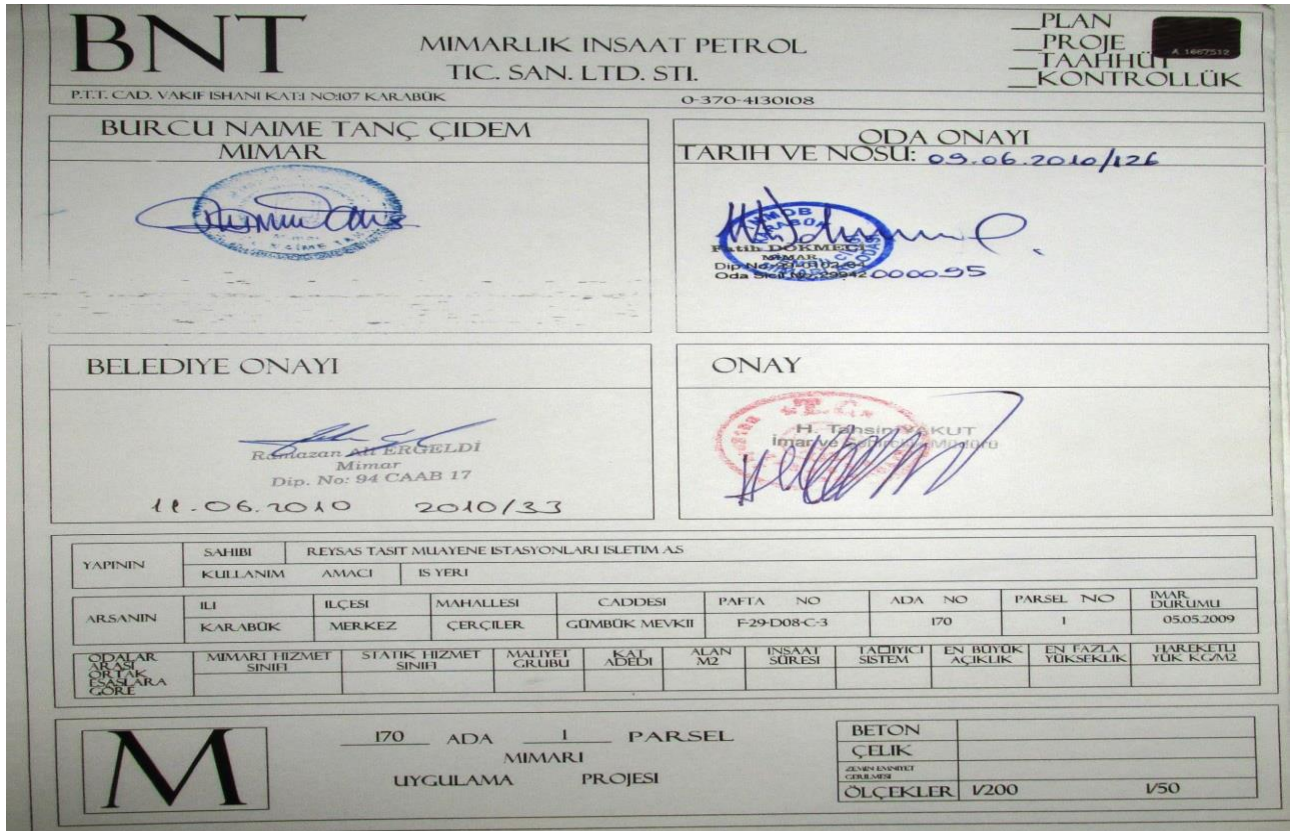 BNT
MIMARLIK INSAAT PETROL
TIC. SAN. LTD. STI.
__PLAN
__PROJE
__TAAHHÜT
__KONTROLLÜK
A 1667512
P.T.T. CAD. VAKIF ISHANI KAT:1 NO:107 KARABÜK
0-370-4130108
BURCU NAIME TANÇ ÇIDEM
MIMAR
ODA ONAYI
TARIH VE NOSU: 09.06.2010/126
Fatih DÖKMECİ
MİMAR
Oda Sicil No: 29942 000095
BELEDIYE ONAYI
Ramazan Ali ERGELDİ
Mimar
Dip. No: 94 CAAB 17
11.06.2010 2010/33
ONAY
T.C.
H. Tahsin YAKUT
İmar ve Müdürü
YAPININ
SAHIBI REYSAS TASIT MUAYENE ISTASYONLARI ISLETIM A.S
KULLANIM AMACI IS YERI
ARSANIN
ILI ILÇESI MAHALLESI CADDESI PAFTA NO ADA NO PARSEL NO IMAR DURUMU
KARABÜK MERKEZ ÇERÇILER GÜMBÜK MEVKII F-29-D08-C-3 170 1 05.05.2009
ODALAR ARASI ORTAK ESASLARA GÖRE
MIMARI HIZMET SINIFI STATIK HIZMET SINIFI MALIYET GRUBU KAT ADEDI ALAN M2 INSAAT SÜRESI TA□IYICI SISTEM EN BÜYÜK AÇIKLIK EN FAZLA YÜKSEKLIK HAREKETLI YÜK KG/M2
M
170 ADA 1 PARSEL
MIMARI
UYGULAMA PROJESI
BETON
ÇELIK
ZEMIN EMNIYET GERILMESI
ÖLÇEKLER 1/200 1/50